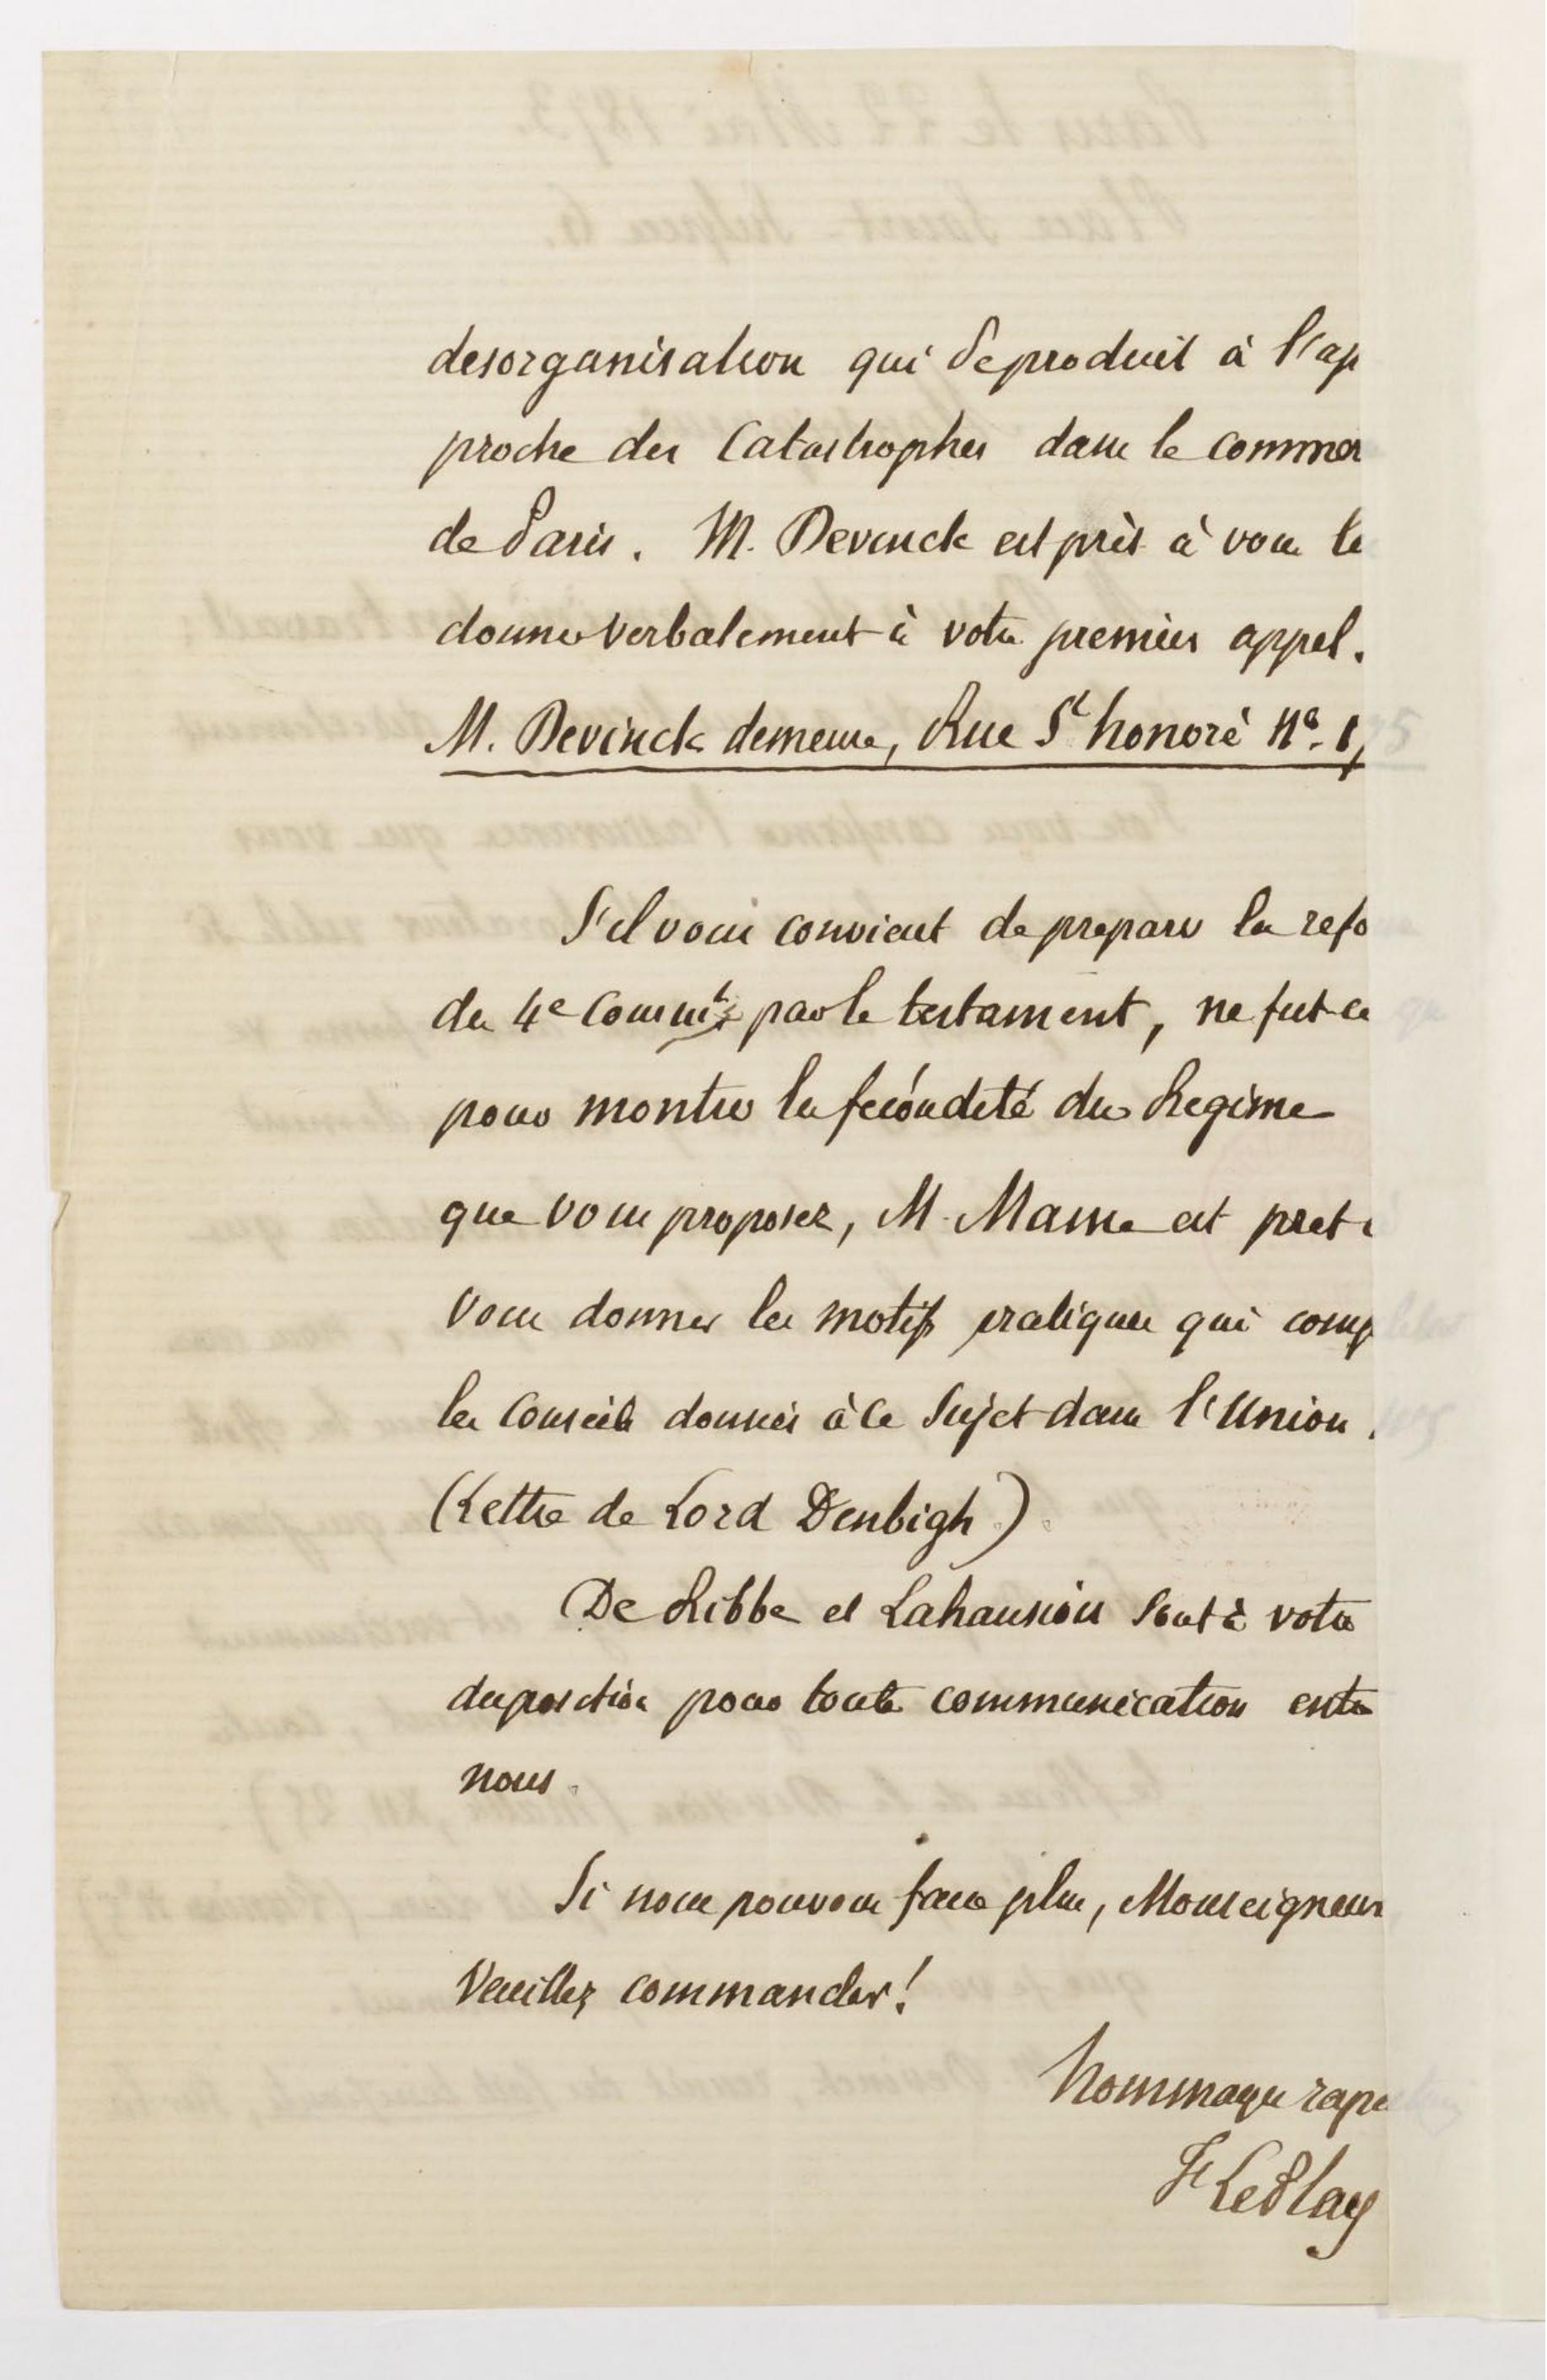 desorganisation qui se produit à l'ap
proche des Catastrophes dans le commer
de Paris. M. Devinck est prêt à vous le
donner verbalement à votre premier appel.
M. Devinck demeure, Rue St honoré No. 1
S'il vous convient de preparer la refo
du 4e Commt par le testament, ne fut-ce
pour montrer la fecondité du Regime
que vous proposez, M. Mame est pret à
vous donner les motifs pratiques qui comp
les Conseils donnés à ce Sujet dans l'Union
(Lettre de Lord Denbigh)
De Ribbe et Lahausiois sont à votre
disposition pour toute communication entre
nous.
Si nous pouvons faire plus, Monseigneur
Veuillez commander!
hommages rape
F Le Play